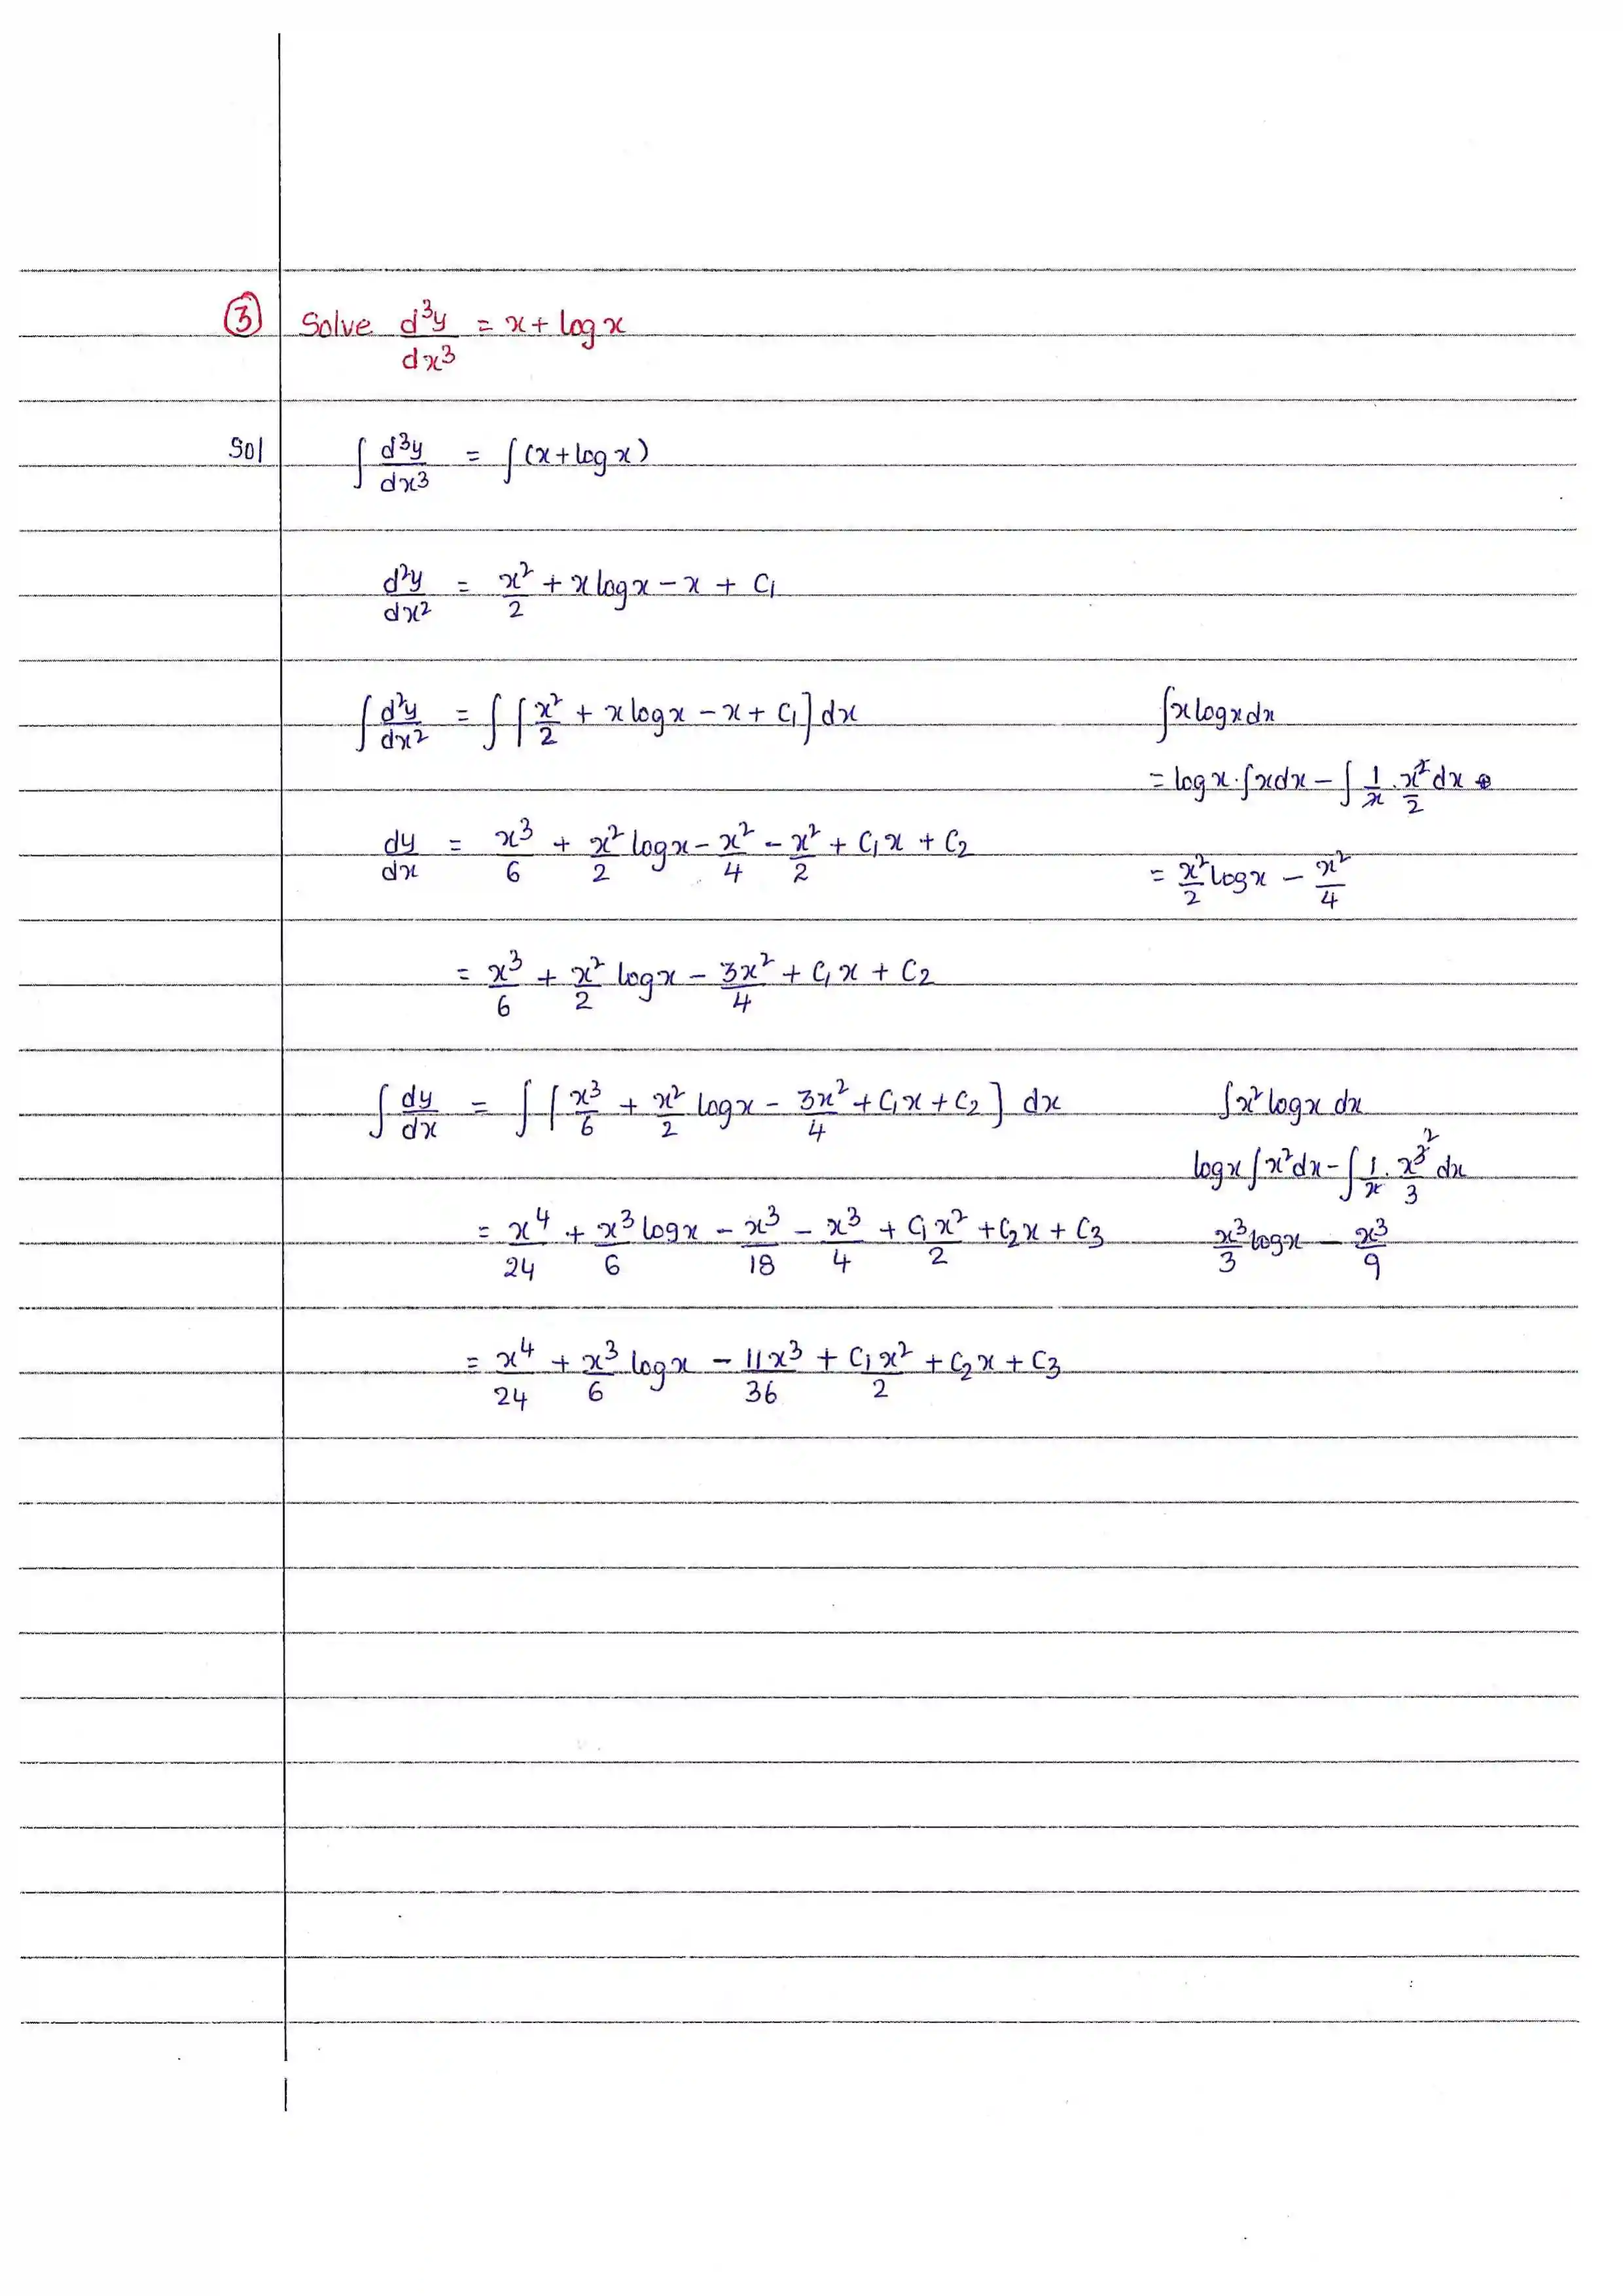 ③ Solve d³y/dx³ = x + log x
Sol ∫ d³y/dx³ = ∫ (x + log x)
d²y/dx² = x²/2 + x log x − x + C₁
∫ d²y/dx² = ∫ [x²/2 + x log x − x + C₁] dx
∫ x log x dx
= log x · ∫ x dx − ∫ 1/x · x²/2 dx
dy/dx = x³/6 + x²/2 log x − x²/4 − x²/2 + C₁x + C₂
= x²/2 log x − x²/4
= x³/6 + x²/2 log x − 3x²/4 + C₁x + C₂
∫ dy/dx = ∫ [x³/6 + x²/2 log x − 3x²/4 + C₁x + C₂] dx
∫ x² log x dx
log x ∫ x² dx − ∫ 1/x · x³/3 dx
= x⁴/24 + x³/6 log x − x³/18 − x³/4 + C₁x²/2 + C₂x + C₃
x³/3 log x − x³/9
= x⁴/24 + x³/6 log x − 11x³/36 + C₁x²/2 + C₂x + C₃